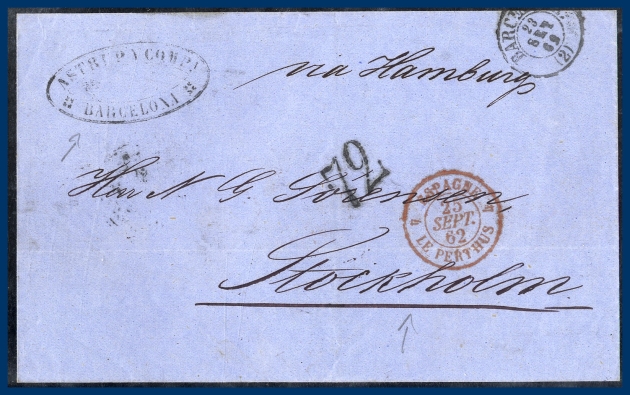 ASTRUP Y COMPA
BARCELONA
BARCE
23
SET
(2)
via Hamburg
70
Herr N G Sörensen,
ESPAGNE
25
SEPT.
62
LE PERTHUS
Stockholm